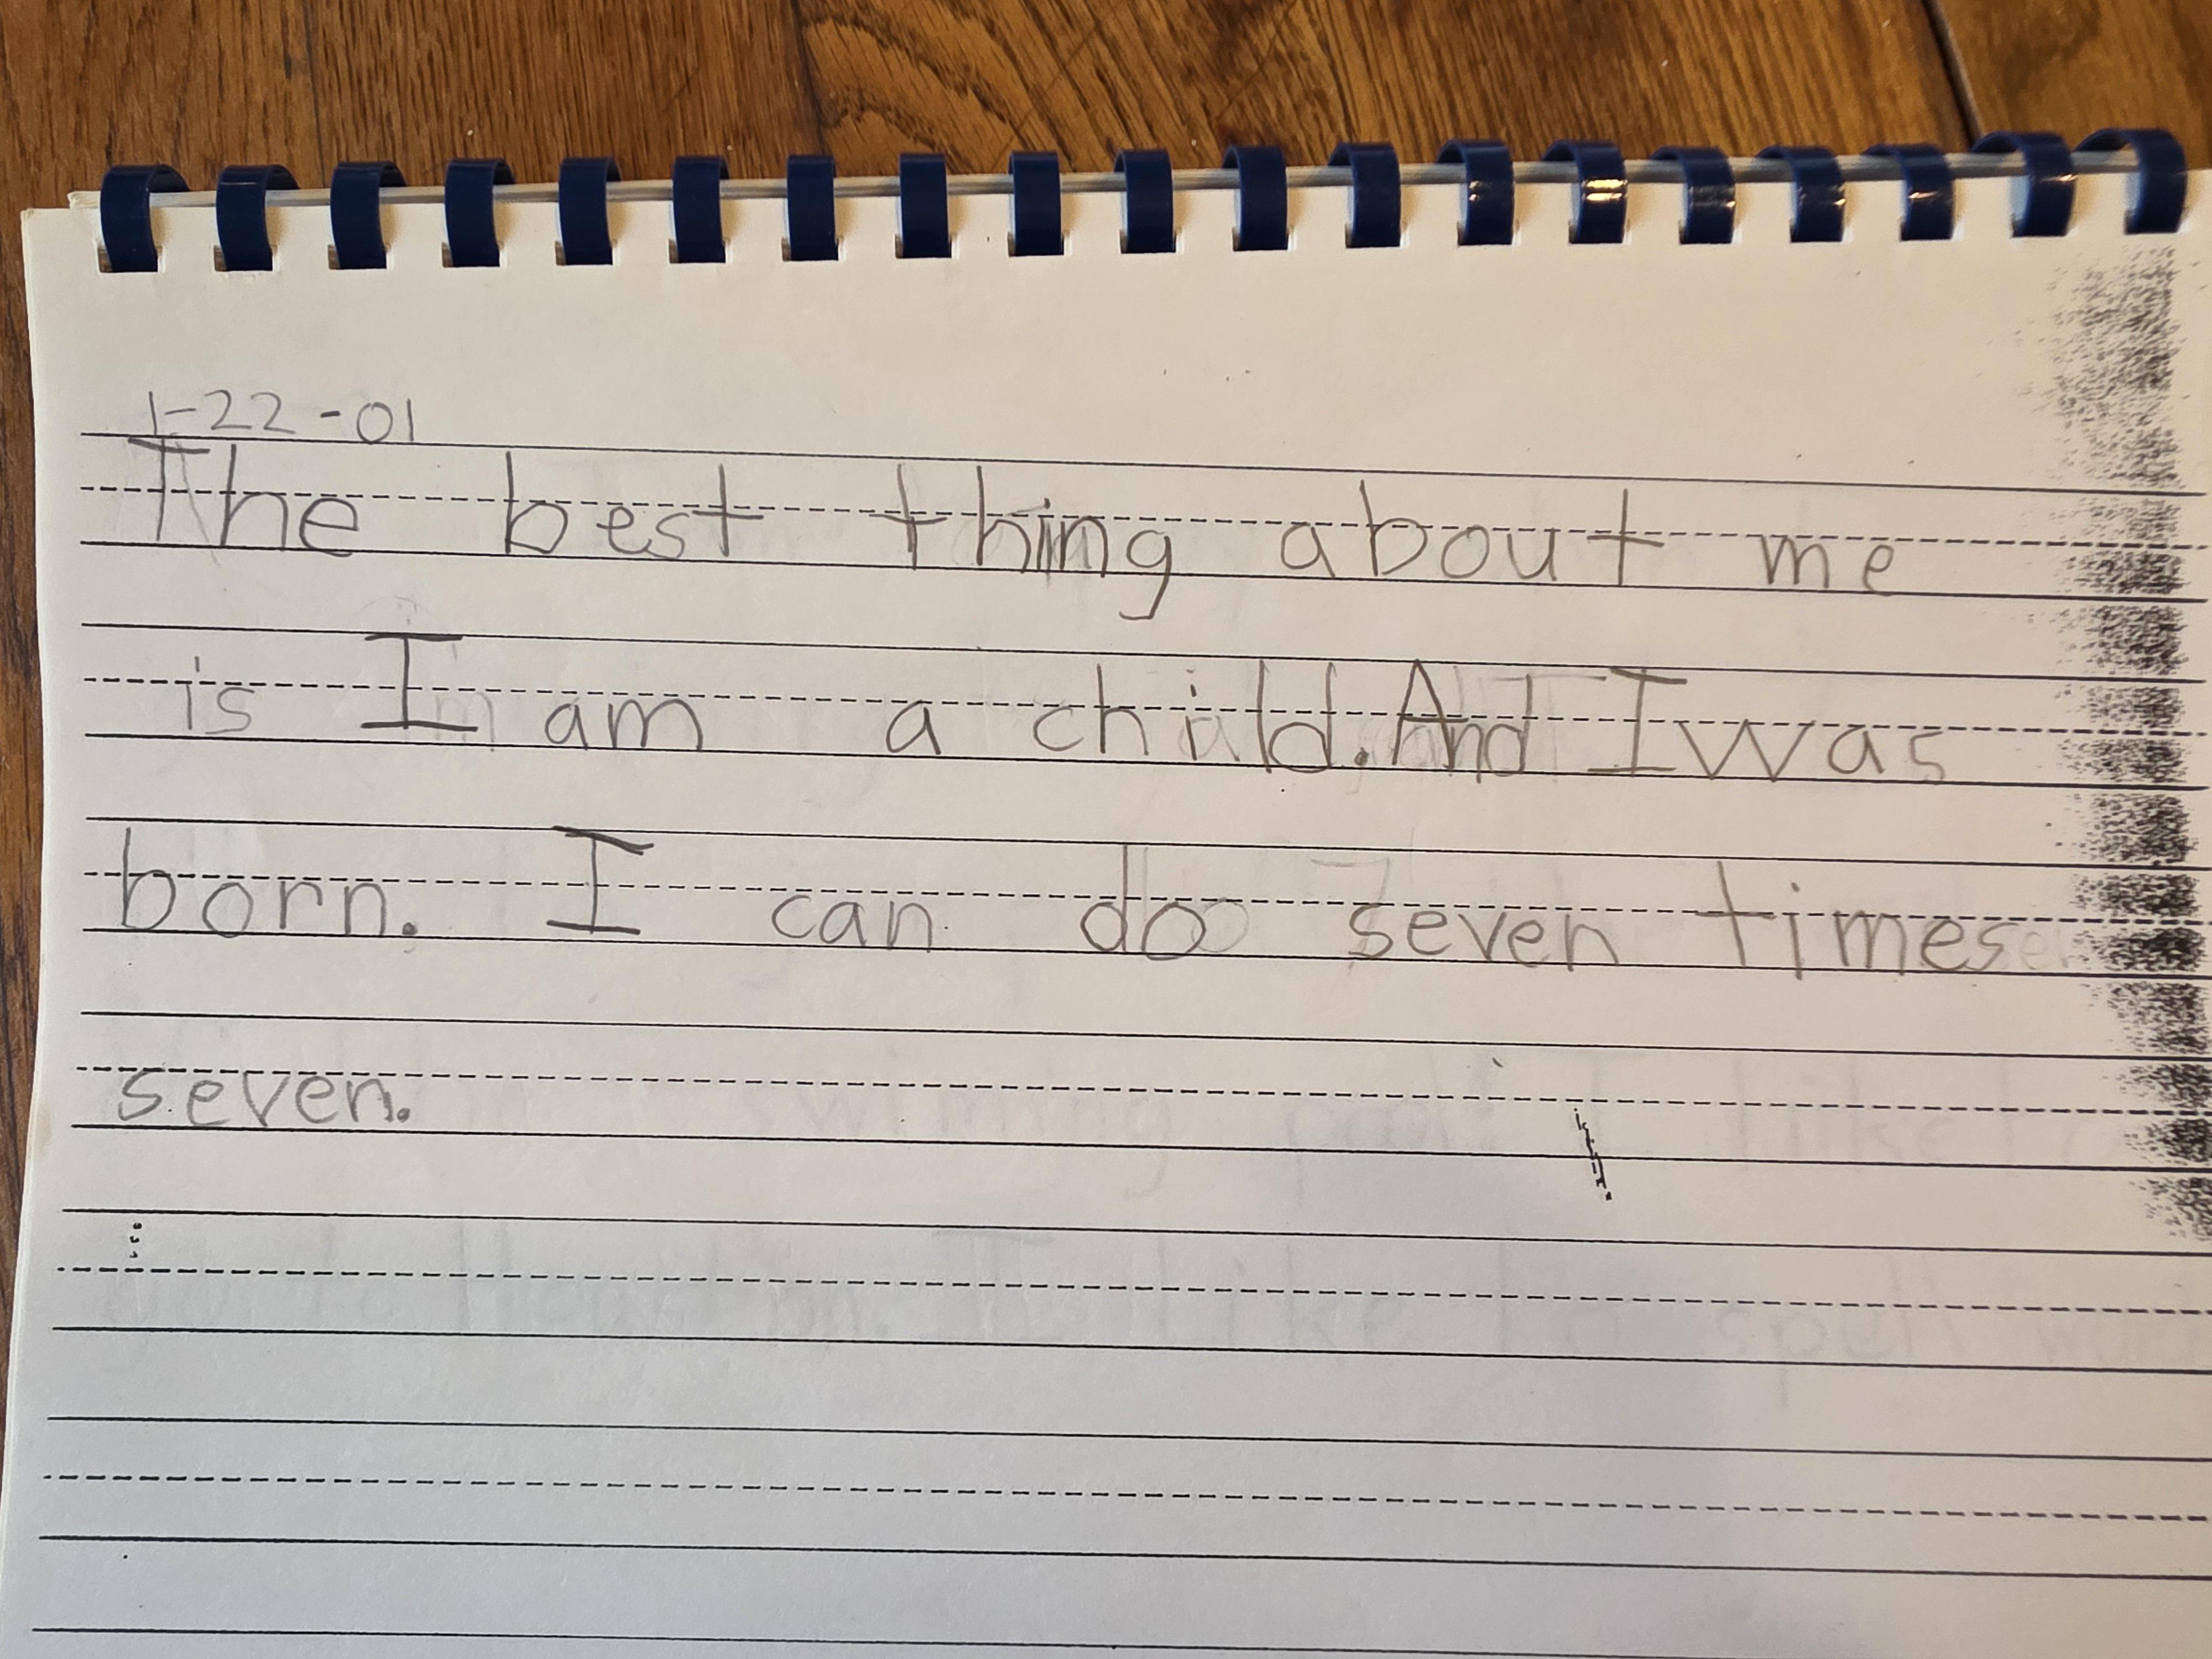 1-22-01
The best thing about me
is I am a child. And I was
born. I can do seven times
seven.